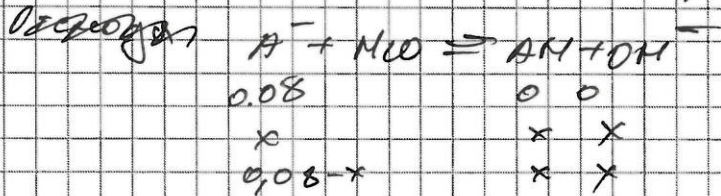 A⁻ + H₂O ⇌ AH + OH⁻
0.08 0 0
x x x
0,08-x x x